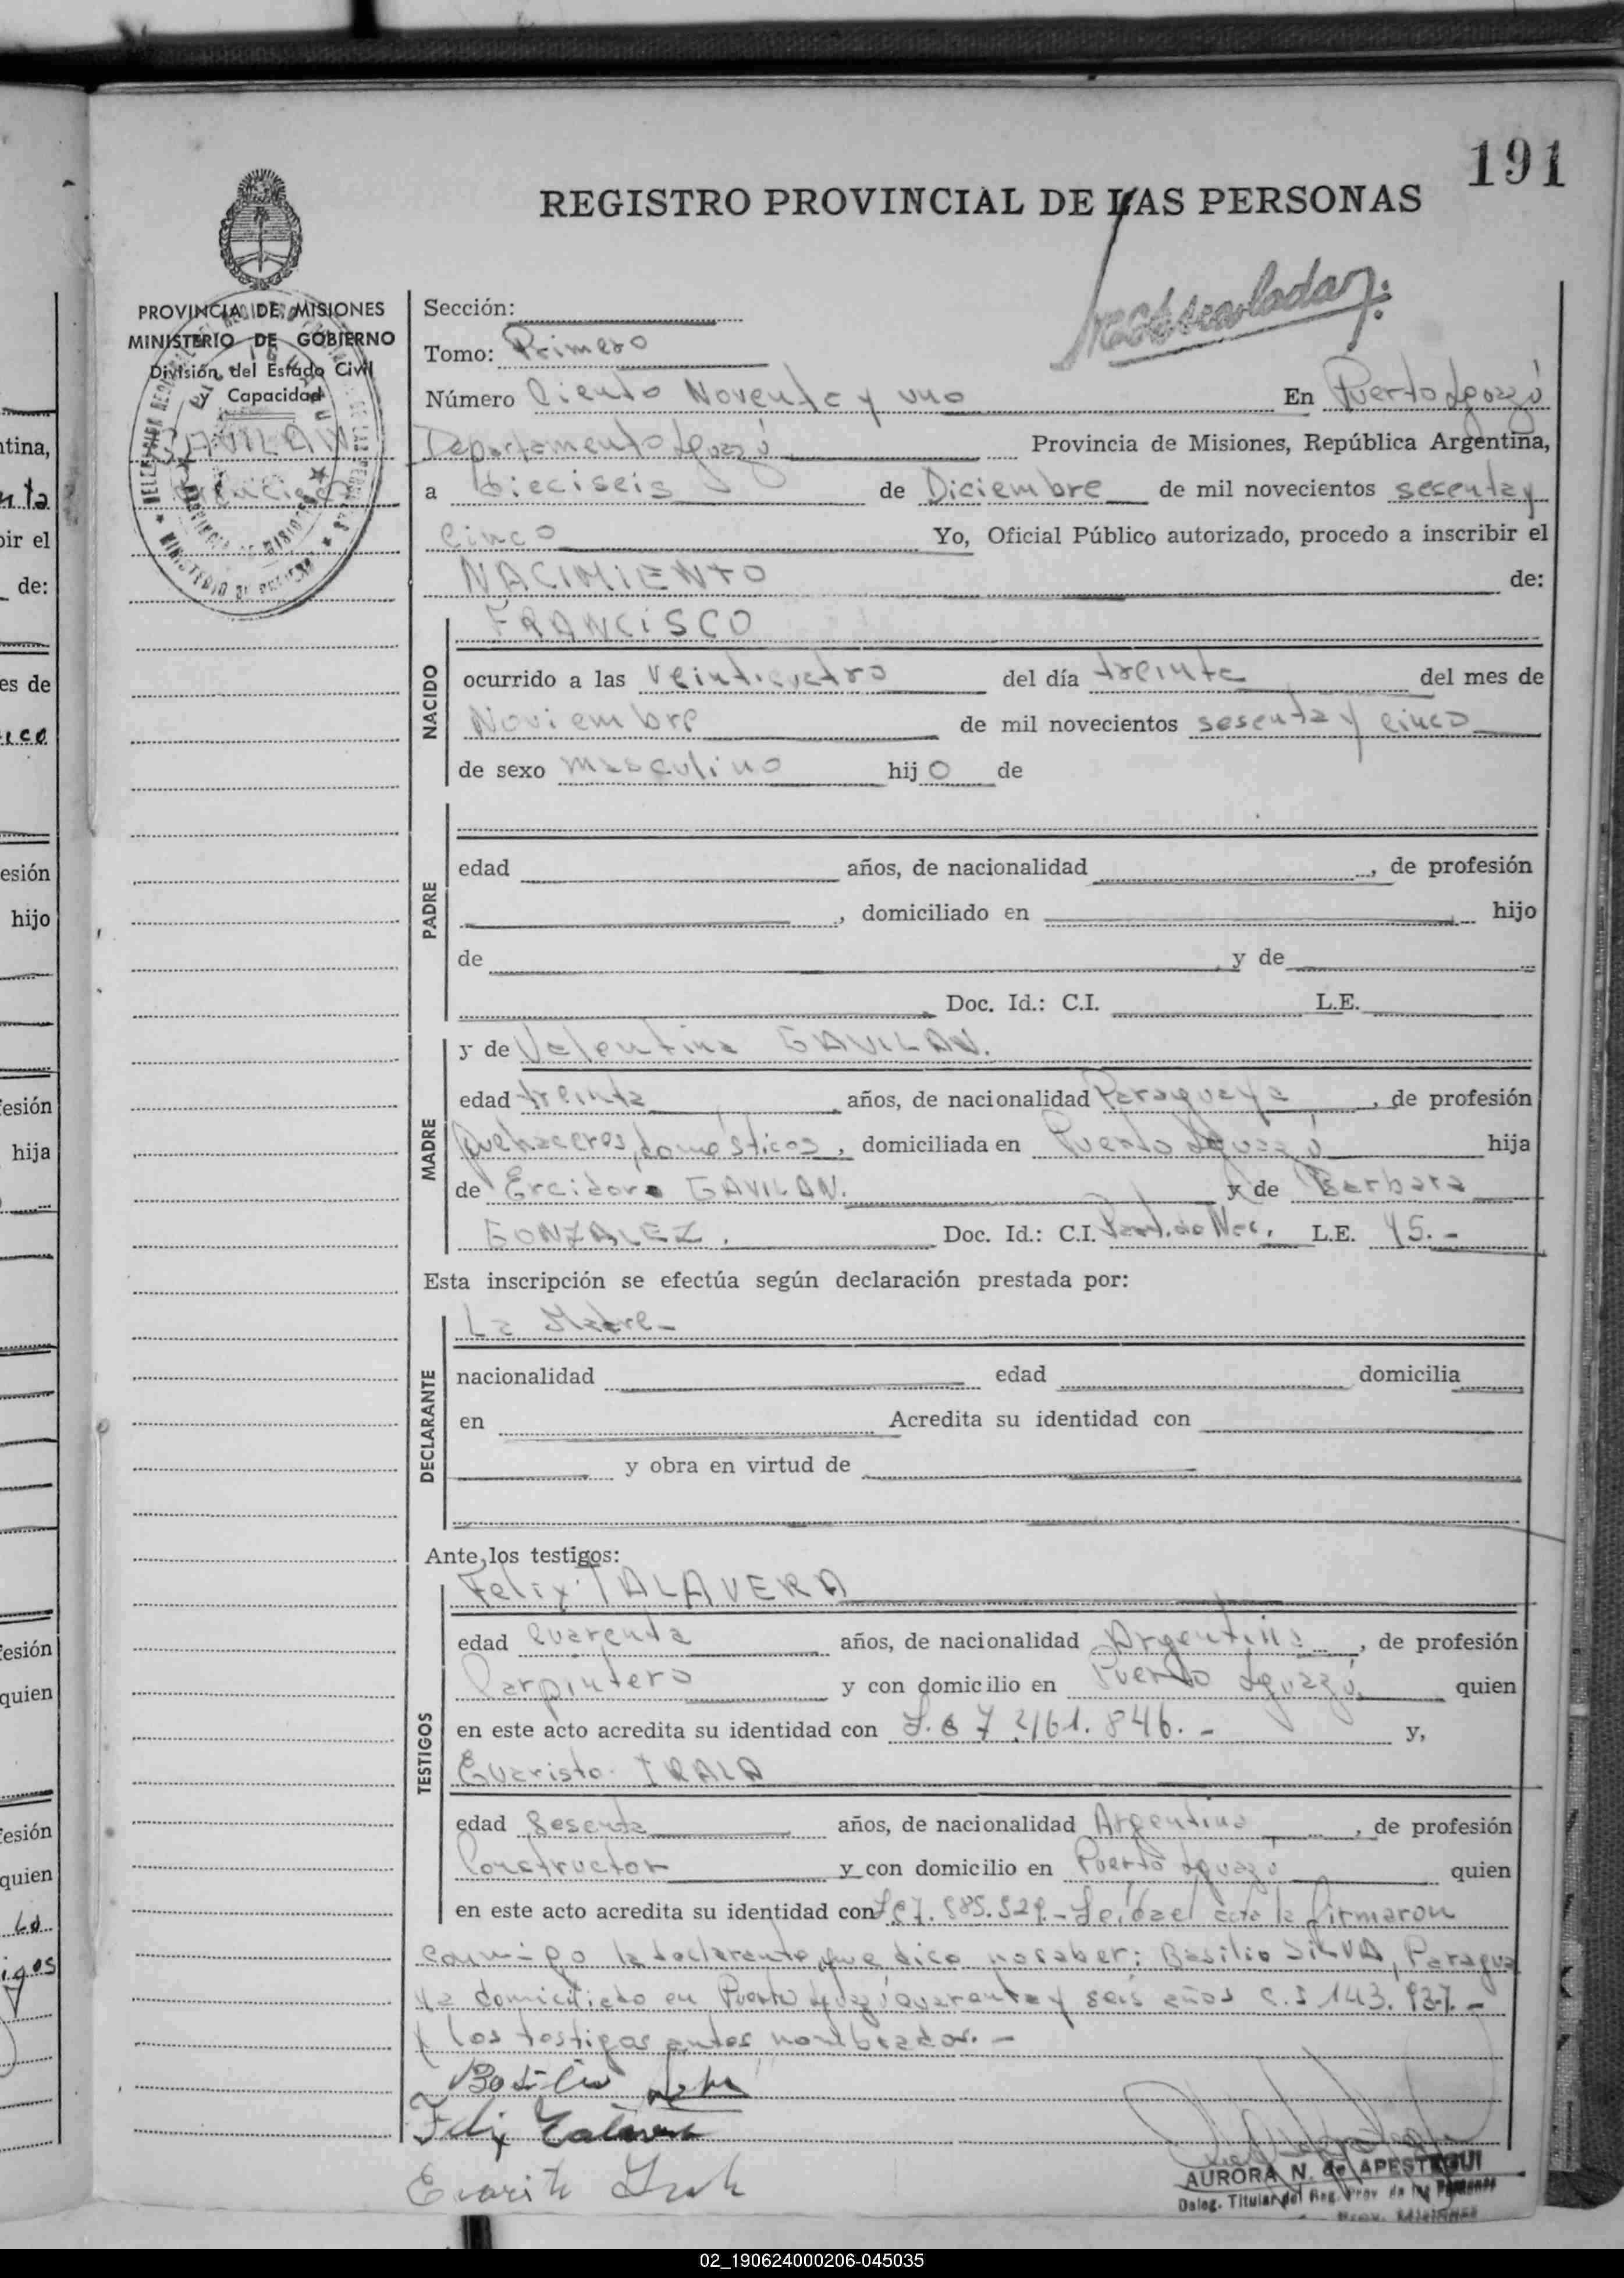 191
REGISTRO PROVINCIAL DE LAS PERSONAS
PROVINCIA DE MISIONES
MINISTERIO DE GOBIERNO
División del Estado Civil
y Capacidad
GAVILAN
Francisco
Sección:
Tomo: Primero
Número Ciento Noventa y uno En Puerto Iguazú
Departamento Iguazú Provincia de Misiones, República Argentina,
a Dieciseis de Diciembre de mil novecientos sesenta y
Cinco Yo, Oficial Público autorizado, procedo a inscribir el
NACIMIENTO de:
NACIDO
FRANCISCO
ocurrido a las Veinticuatro del día treinta del mes de
Noviembre de mil novecientos sesenta y cinco
de sexo masculino hijo de
PADRE
edad años, de nacionalidad , de profesión
, domiciliado en hijo
de y de
Doc. Id.: C.I. L.E.
MADRE
y de Valentina GAVILAN.
edad treinta años, de nacionalidad Paraguaya , de profesión
Quehaceres domésticos, domiciliada en Puerto Iguazú hija
de Ercidoro GAVILAN. y de Barbara
GONZALEZ. Doc. Id.: C.I. Part. de Nac. L.E. 45.-
Esta inscripción se efectúa según declaración prestada por:
DECLARANTE
La Madre-
nacionalidad edad domicilia
en Acredita su identidad con
y obra en virtud de
Ante los testigos:
TESTIGOS
Felix TALAVERA
edad Cuarenta años, de nacionalidad Argentina , de profesión
Carpintero y con domicilio en Puerto Iguazú quien
en este acto acredita su identidad con 846.- y,
Evaristo IRALA
edad Sesenta años, de nacionalidad Argentino , de profesión
Constructor y con domicilio en Puerto Iguazú quien
en este acto acredita su identidad con 529.- Leída el acta la firmaron
conmigo la declarante, que dice no saber: Basilio SILVA, Paragua
ya domiciliado en Puerto Iguazú cuarenta y seis años C.I 143.937.-
y los testigos antes nombrados.-
Basilio
Felix Talavera
AURORA N. de APESTEGUI
Deleg. Titular del Reg. Prov. de las Personas
Prov. MISIONES
tina,
nta
bir el
de:
es de
ico
esión
hijo
fesión
hija
fesión
quien
fesión
quien
igos
02_190624000206-045035